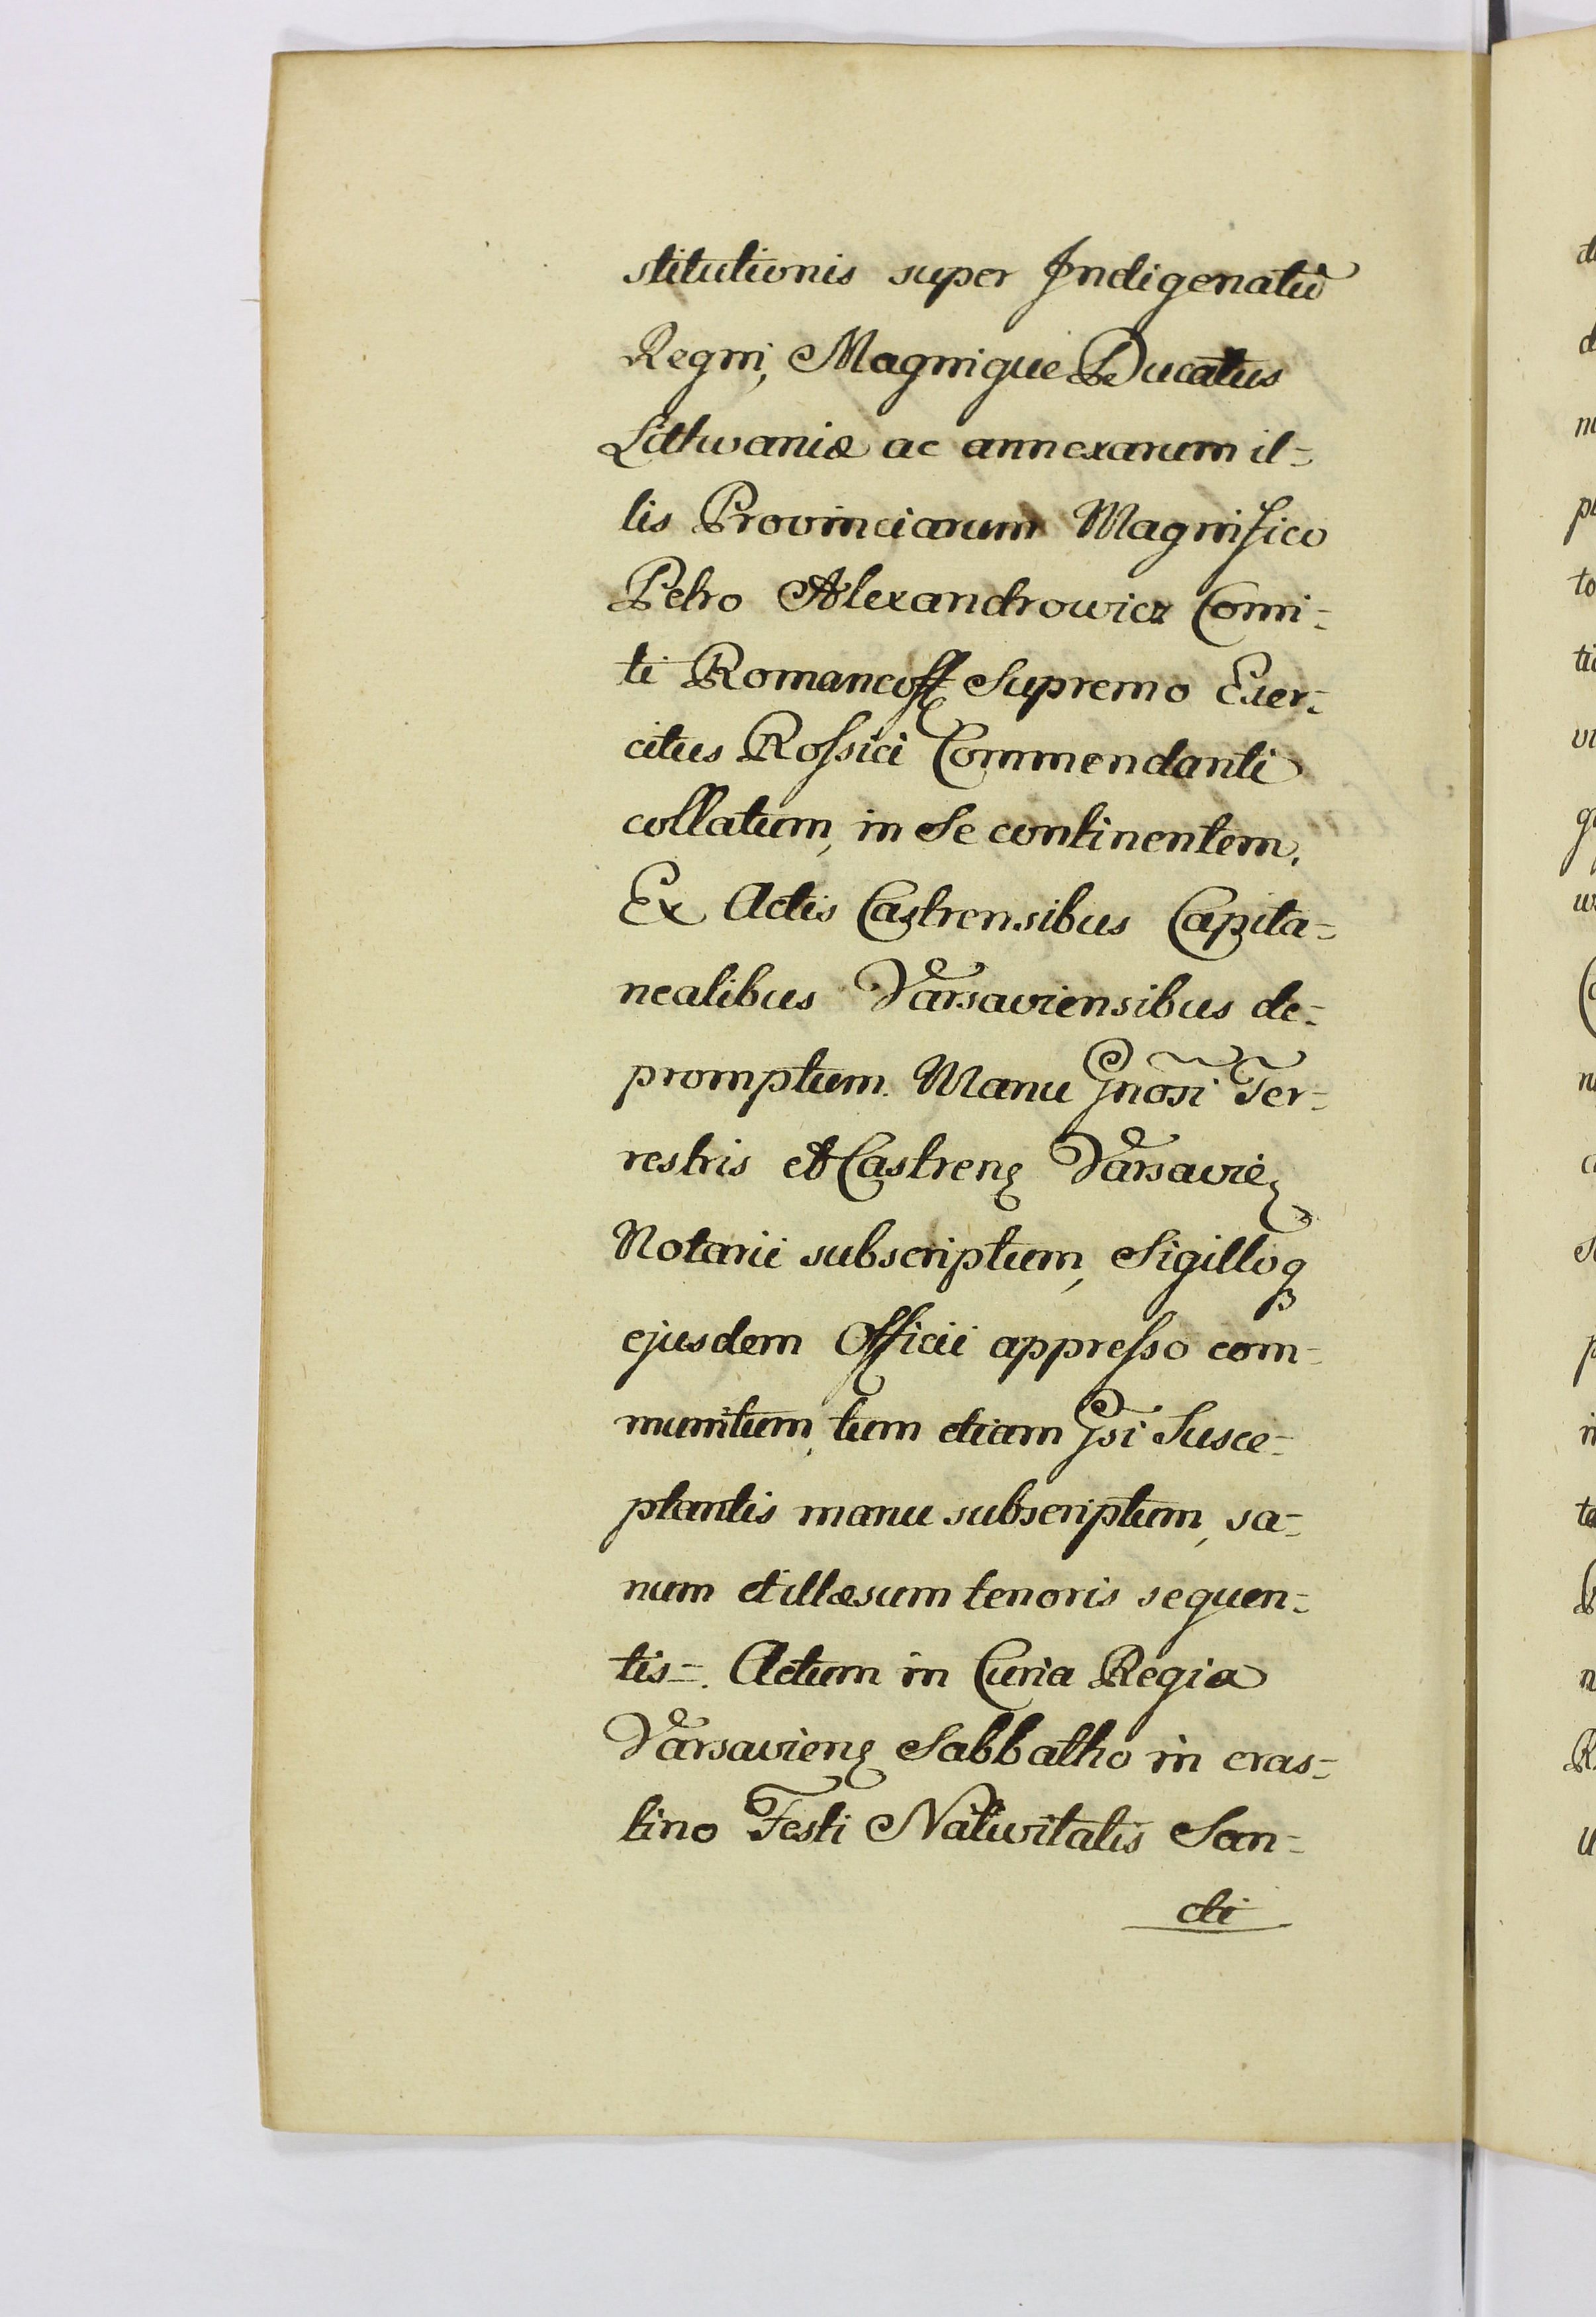 stitutionis super Indigenatu
Regni, Magnique Ducatus
Lithwaniæ ac annexarum il-
lis Provinciarum Magnifico
Petro Alexandrowicz Comi-
ti Romancoff Supremo Exer-
citus Roſsici Commendanti
collatum, in Se continentem.
Ex Actis Castrensibus Capita-
nealibus Varsaviensibus de-
promptum. Manu Gnosi Ter-
restris et Castren̄ Varsavien̄
Notarii subscriptum, Sigilloq
ejusdem Officii appreſso com-
munitum, tum etiam Gsi Susce-
ptantis manu subscriptum, sa-
num et illæsum tenoris sequen-
tis-. Actum in Curia Regia
Varsavien̄ Sabbatho in cras-
tino Festi Nativitatis San-
cti